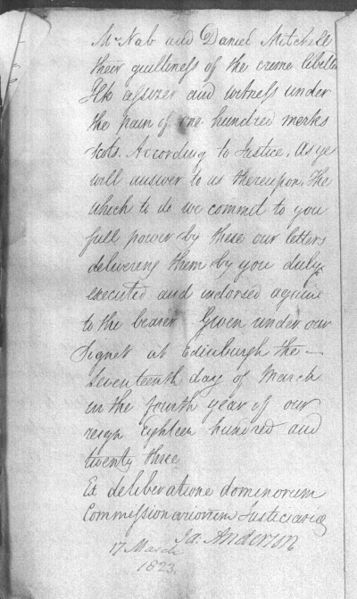 McNab and Daniel Mitchell
their guiltiness of the crime libelled
Ilk assizer and witness under
the pain of one hundred merks
Scots. According to Justice, as ye
will answer to us thereupon. The
which to do we commit to you
full power by these our letters
delivering them by you duly
executed and indorsed again
to the bearer Given under our
Signet at Edinburgh the —
Seventeenth day of March
in the fourth year of our
reign Eighteen hundred and
twenty three
Ex deliberatione dominorum
Commissionariorum Justiciariae
Ja. Anderson
17 March
1823.